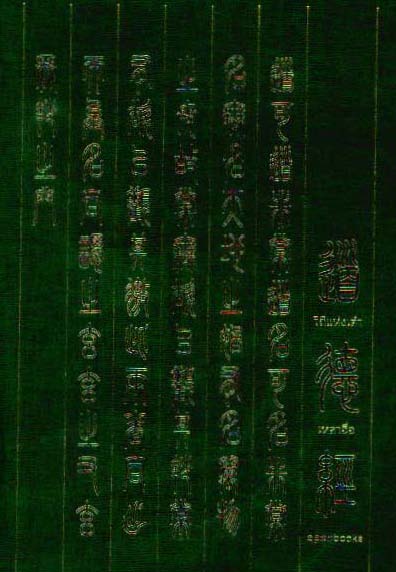 道德經
วิถีแห่งเต๋า
เหลาจื่อ
openbooks
道可道非常道名可名非常
名無名天地之始有名萬物
之母故常無欲以觀其妙常
有欲以觀其徼此兩者同出
而異名同謂之玄玄之又玄
眾妙之門